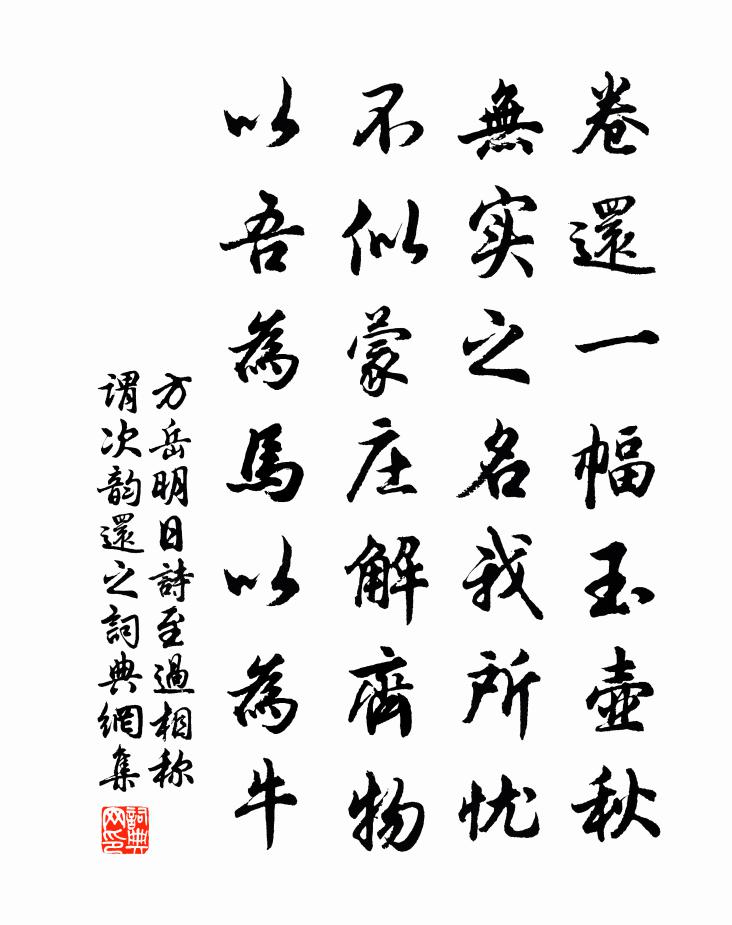 卷還一幅玉壺秋
無实之名我所忧
不似蒙庄解齊物
以吾為馬以為牛
方岳明日詩至過相称
谓次韵還之詞典網集
詞典网印